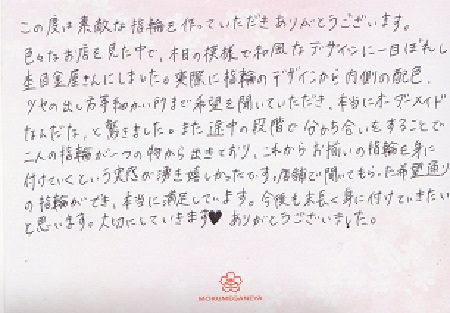 この度は素敵な指輪を作っていただきありがとうございます。
色々なお店を見た中で、木目の模様で和風なデザインに一目ぼれし
杢目金屋さんにしました。実際に指輪のデザインから内側の配色、
ツヤの出し方等細かい所まで希望を聞いていただき、本当にオーダーメイド
なんだな、と驚きました。また途中の段階で分かち合いをすることで
二人の指輪が一つの物から出きており、これからお揃いの指輪を身に
付けていくという実感が湧き嬉しかったです。店舗で聞いてもらった希望通り
の指輪ができ、本当に満足しています。今後も末長く身に付けていきたい
と思います。大切にしていきます♥ ありがとうございました。
MOKUMEGANEYA